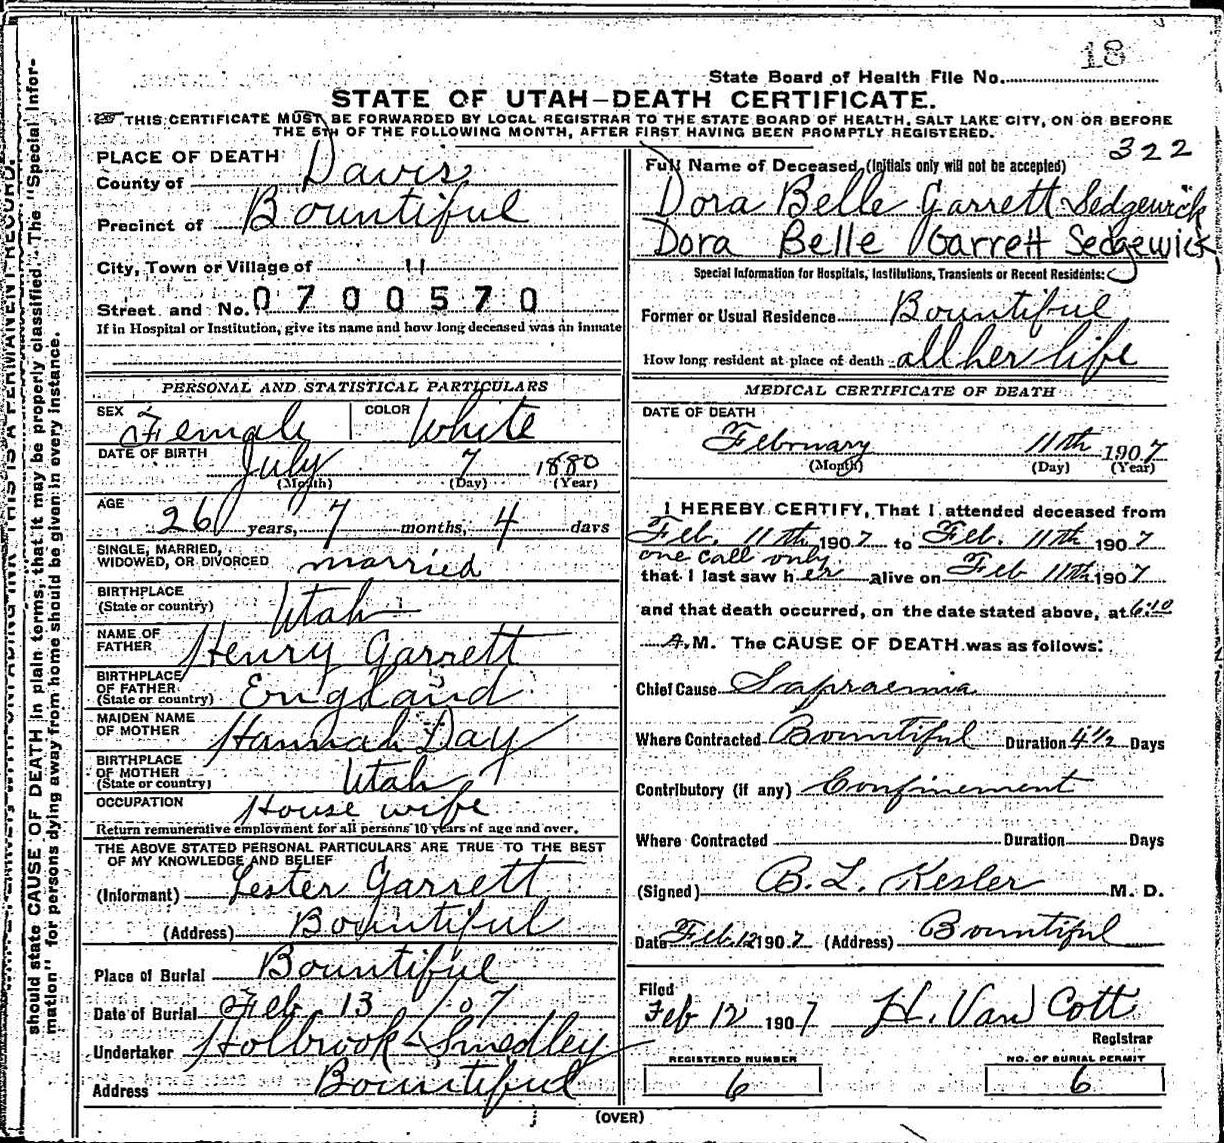 18
State Board of Health File No.
STATE OF UTAH—DEATH CERTIFICATE.
THIS CERTIFICATE MUST BE FORWARDED BY LOCAL REGISTRAR TO THE STATE BOARD OF HEALTH, SALT LAKE CITY, ON OR BEFORE
THE 5TH OF THE FOLLOWING MONTH, AFTER FIRST HAVING BEEN PROMPTLY REGISTERED.
PLACE OF DEATH
County of Davis
Precinct of Bountiful
City, Town or Village of "
Street and No. 0700570
If in Hospital or Institution, give its name and how long deceased was an inmate
PERSONAL AND STATISTICAL PARTICULARS
SEX Female COLOR White
DATE OF BIRTH July 7 1880
(Month) (Day) (Year)
AGE 26 years, 7 months, 4 days
SINGLE, MARRIED,
WIDOWED, OR DIVORCED married
BIRTHPLACE
(State or country) Utah
NAME OF
FATHER Henry Garrett
BIRTHPLACE
OF FATHER
(State or country) England
MAIDEN NAME
OF MOTHER Hannah Day
BIRTHPLACE
OF MOTHER
(State or country) Utah
OCCUPATION House wife
Return remunerative employment for all persons 10 years of age and over.
THE ABOVE STATED PERSONAL PARTICULARS ARE TRUE TO THE BEST
OF MY KNOWLEDGE AND BELIEF
(Informant) Lester Garrett
(Address) Bountiful
Place of Burial Bountiful
Date of Burial Feb 13 /07
Undertaker Holbrook & Smedley
Address Bountiful
322
Full Name of Deceased (Initials only will not be accepted)
Dora Belle Garrett Sedgewick
Dora Belle Garrett Sedgewick
Special Information for Hospitals, Institutions, Transients or Recent Residents:
Former or Usual Residence Bountiful
How long resident at place of death all her life
MEDICAL CERTIFICATE OF DEATH
DATE OF DEATH
February 11th 1907
(Month) (Day) (Year)
I HEREBY CERTIFY, That I attended deceased from
Feb. 11th 1907 to Feb. 11th 1907
one call only
that I last saw her alive on Feb 11th 1907
and that death occurred, on the date stated above, at 6:10
A.M. The CAUSE OF DEATH was as follows:
Chief Cause Sapraemia
Where Contracted Bountiful Duration 4½ Days
Contributory (if any) Confinement
Where Contracted Duration Days
(Signed) B. L. Kesler M. D.
Date Feb 12 1907 (Address) Bountiful
Filed
Feb 12 1907 H. Van Cott
Registrar
REGISTERED NUMBER NO. OF BURIAL PERMIT
6 6
(OVER)
THIS IS A PERMANENT RECORD.
should state CAUSE OF DEATH in plain terms, that it may be properly classified. The "Special Infor-
mation" for persons dying away from home should be given in every instance.